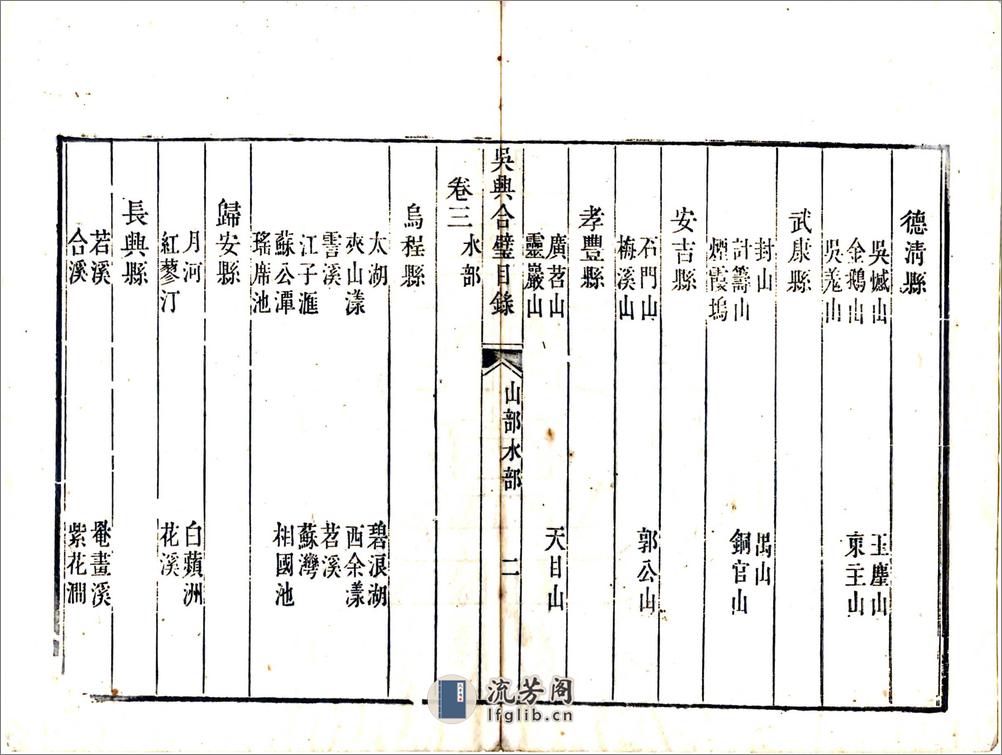 德清縣
吳憾山 玉塵山
金鵝山 東主山
吳羌山
武康縣
封山 禺山
計籌山 銅官山
煙霞塢
安吉縣
石門山 郭公山
梅溪山
孝豐縣
廣苕山 天目山
靈巖山
吳興合璧目錄 山部水部 二
卷三 水部
烏程縣
太湖 碧浪湖
夾山漾 西余漾
霅溪 苕溪
江子滙 蘇灣
蘇公潭 相國池
瑤席池
歸安縣
月河 白蘋洲
紅蓼汀 花溪
長興縣
若溪 罨畫溪
合溪 紫花澗
流芳阁
lfglib.cn